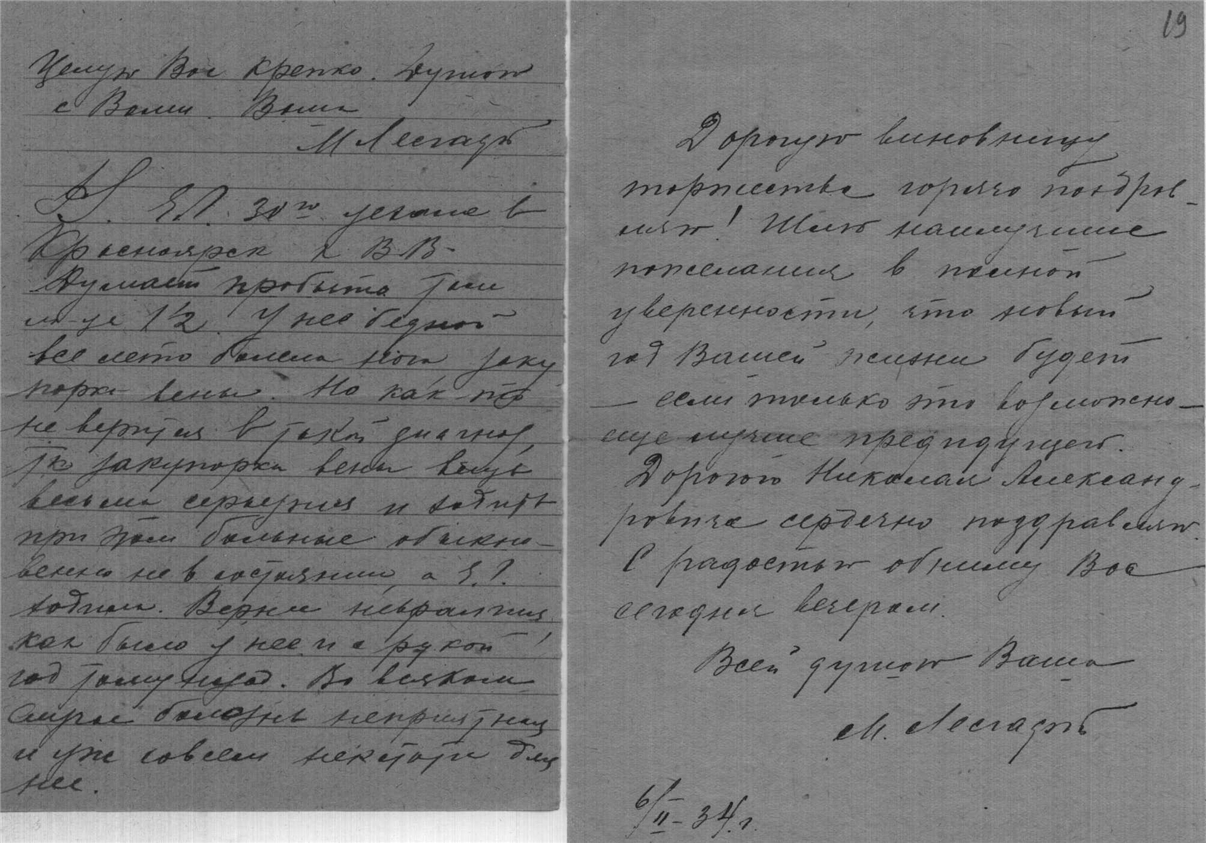 Целую Вас крепко. Душою
с Вами. Ваша
М Лесгафт
PS. Е.Л. 30го уехала в
Красноярск к В.В.
Думает пробыть там
м-ца 1½. У нее бедной
все лето болела нога заку
порка вены. Но как-то
не верится в такой диагноз,
тк закупорка вены вещь
весьма серьезная и ходить
при этом больные обыкно-
венно не в состоянии, а Е.Л.
ходила. Вернее невралгия,
как было у нее и с рукой
год тому назад. Во всяком
случае болезнь неприятная
и уж совсем некстати для
нее.
19
Дорогую виновницу
торжества горячо поздрав-
ляю! Шлю наилучшие
пожелания в полной
уверенности, что новый
год Вашей жизни будет
— если только это возможно —
еще лучше предидущего.
Дорогого Николая Александ-
ровича сердечно поздравляю.
С радостью обниму Вас
сегодня вечером.
Всей душою Ваша
М. Лесгафт
6/II - 34 г.